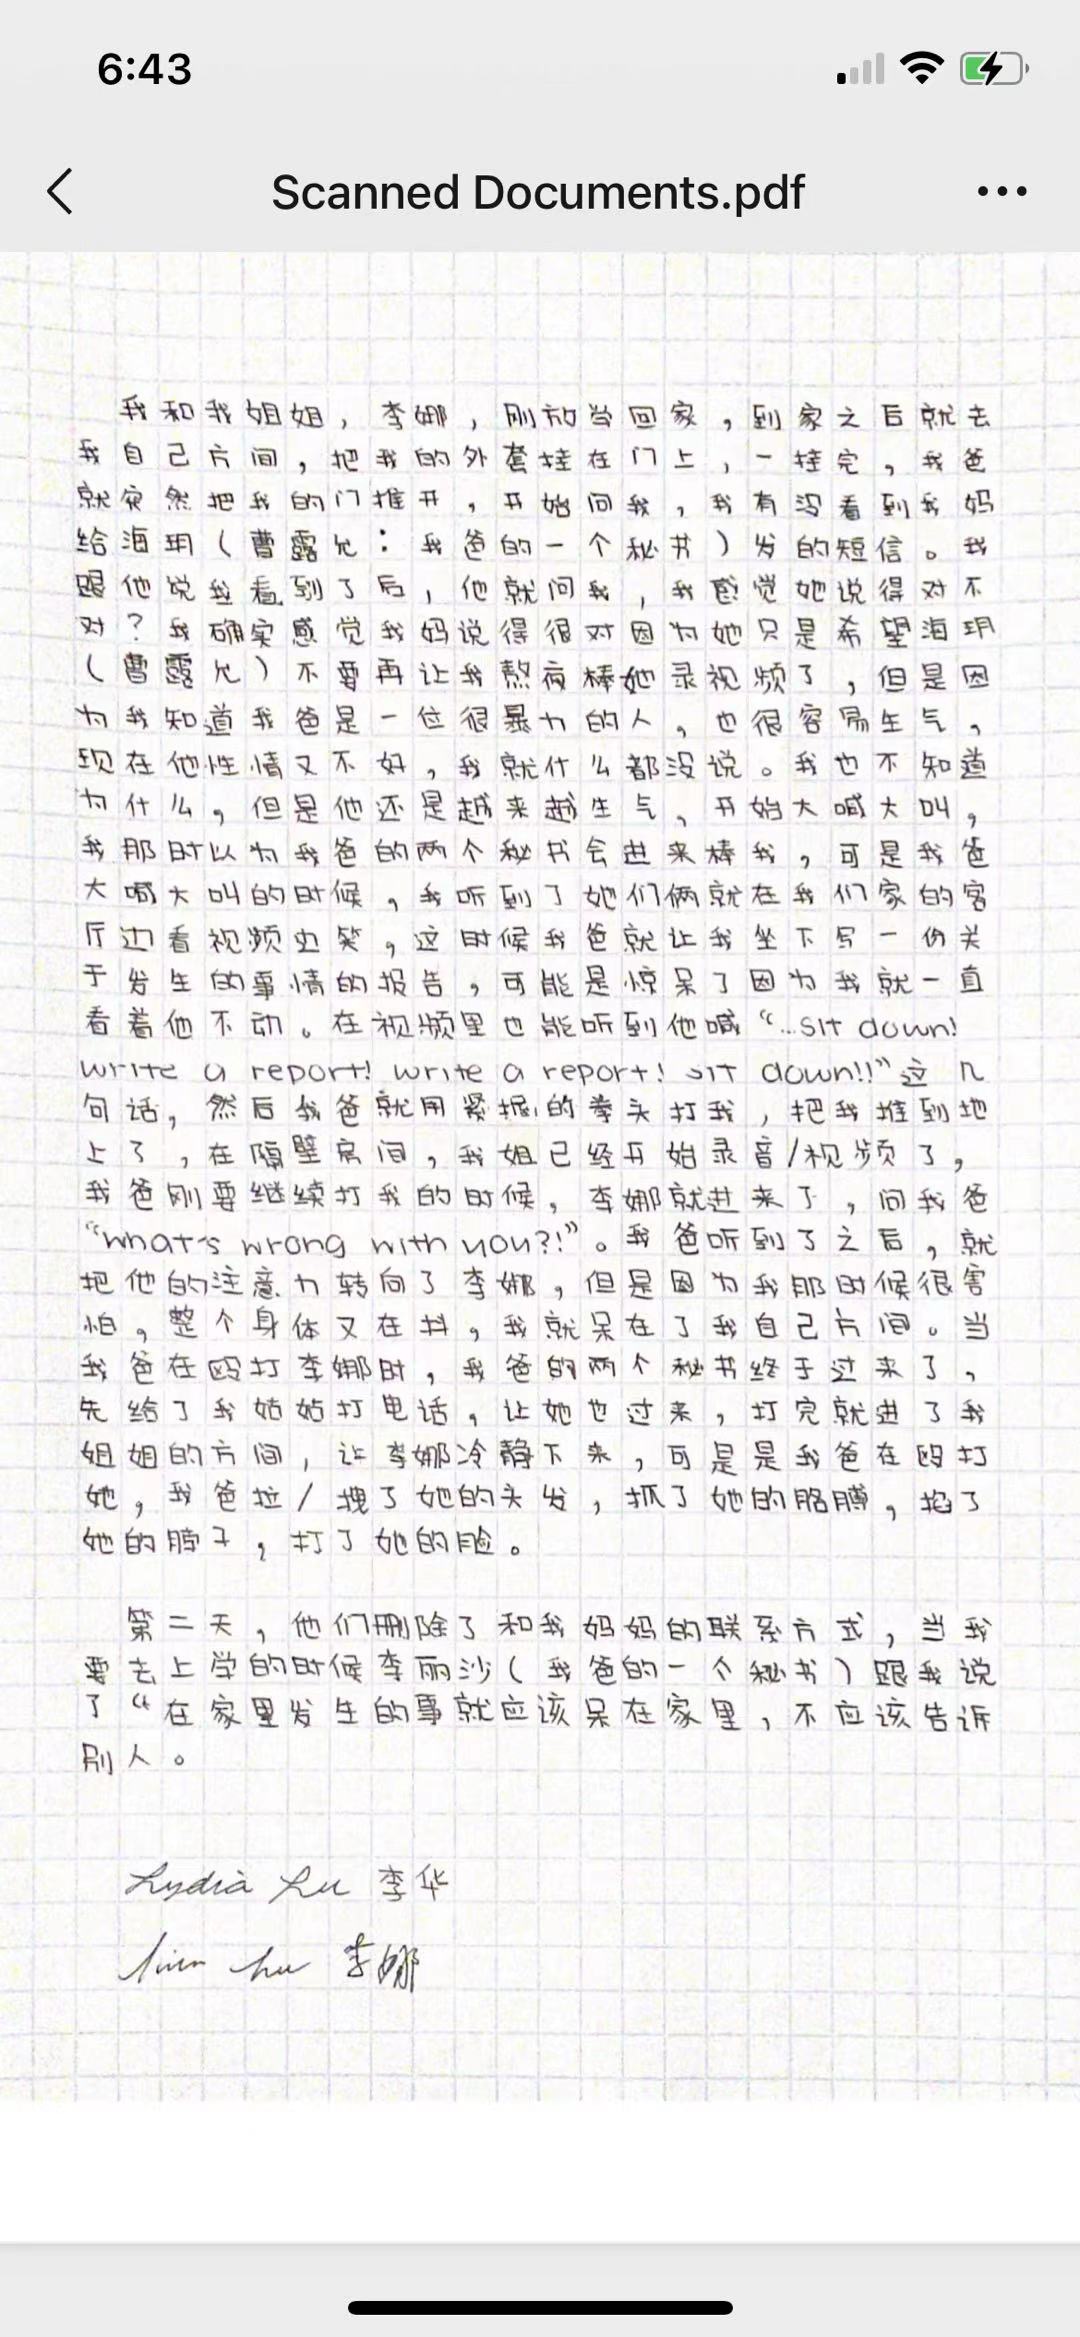 6:43
Scanned Documents.pdf
我和我姐姐，李娜，刚放学回家，到家之后就去
我自己方间，把我的外套挂在门上，一挂完，我爸
就突然把我的门推开，开始问我，我有没看到我妈
给海玥（曹露允：我爸的一个秘书）发的短信。我
跟他说我看到了后，他就问我，我感觉她说得对不
对？我确实感觉我妈说得很对因为她只是希望海玥
（曹露允）不要再让我熬夜棒她录视频了，但是因
为我知道我爸是一位很暴力的人，也很容易生气，
现在他性情又不好，我就什么都没说。我也不知道
为什么，但是他还是越来越生气，开始大喊大叫，
我那时以为我爸的两个秘书会进来棒我，可是我爸
大喊大叫的时候，我听到了她们俩就在我们家的客
厅边看视频边笑，这时候我爸就让我坐下写一份关
于发生的事情的报告，可能是惊呆了因为我就一直
看着他不动。在视频里也能听到他喊“...sit down!
write a report! write a report! sit down!!”这几
句话，然后我爸就用紧握的拳头打我，把我推到地
上了，在隔壁房间，我姐已经开始录音/视频了，
我爸刚要继续打我的时候，李娜就进来了，问我爸
“what's wrong with you?!”。我爸听到了之后，就
把他的注意力转向了李娜，但是因为我那时候很害
怕，整个身体又在抖，我就呆在了我自己方间。当
我爸在殴打李娜时，我爸的两个秘书终于过来了，
先给了我姑姑打电话，让她也过来，打完就进了我
姐姐的方间，让李娜冷静下来，可是是我爸在殴打
她，我爸拉/拽了她的头发，抓了她的胳膊，掐了
她的脖子，打了她的脸。
第二天，他们删除了和我妈妈的联系方式，当我
要去上学的时候李丽沙（我爸的一个秘书）跟我说
了“在家里发生的事就应该呆在家里，不应该告诉
别人。
Lydia Lu 李华
Lu 李娜